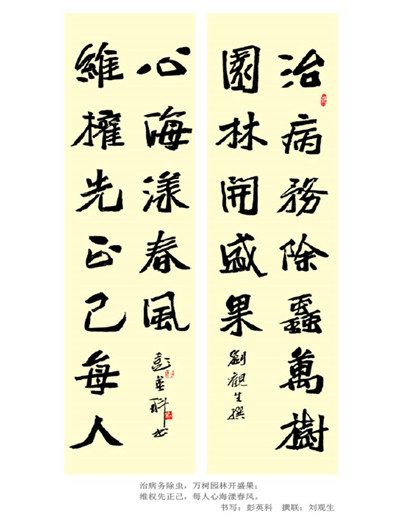 治病務除蟲萬樹
園林開盛果
劉觀生撰
維權先正己每人
心海漾春風
彭英科书
治病务除虫，万树园林开盛果；
维权先正己，每人心海漾春风。
书写：彭英科　撰联：刘观生